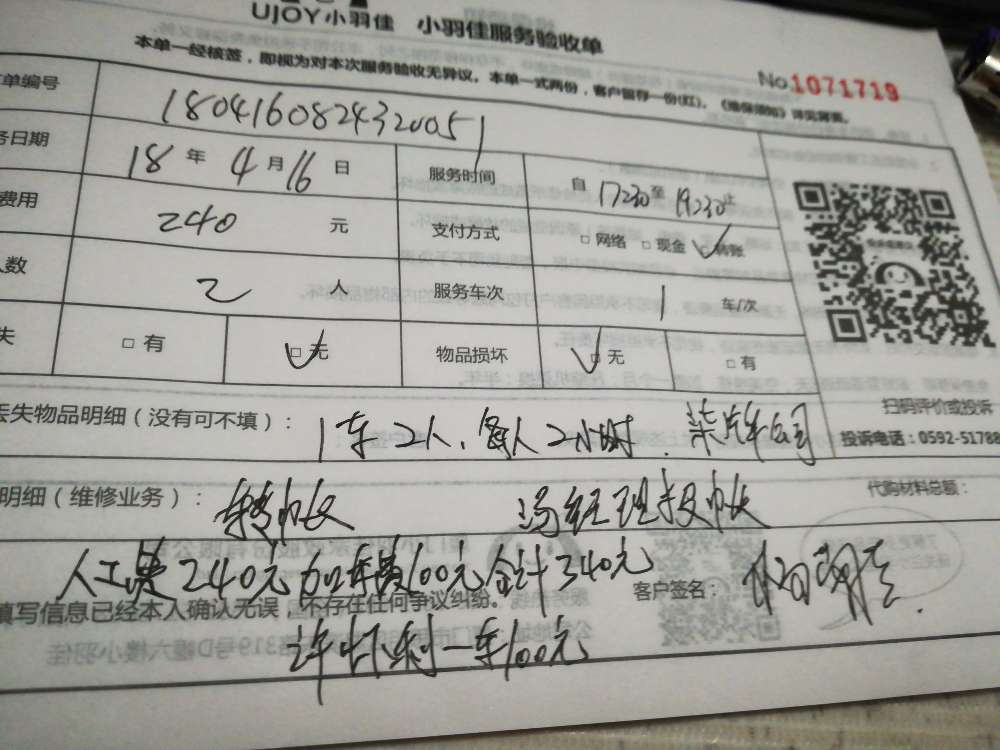 UJOY小羽佳 小羽佳服务验收单
本单一经核签，即视为对本次服务验收无异议。本单一式两份，客户留存一份(红)。《维保须知》详见背面。
No 1071719
单编号 180416082432005
务日期 18 年 4 月 16 日 服务时间 自 17:30 至 19:30 止
费用 240 元 支付方式 □ 网络 □ 现金 ☑ 转账
人数 2 人 服务车次 1 车/次
失 □ 有 ☑ 无 物品损坏 ☑ 无 □ 有
扫码评价或投诉
丢失物品明细（没有可不填）： 1车2人、每人2小时 汽车公司
投诉电话：0592-51788
明细（维修业务）： 转帐 冯经理报帐 代购材料总额：
人工费240元加车费100元合计340元
填写信息已经本人确认无误，不存在任何争议纠纷。 客户签名：
一车100元